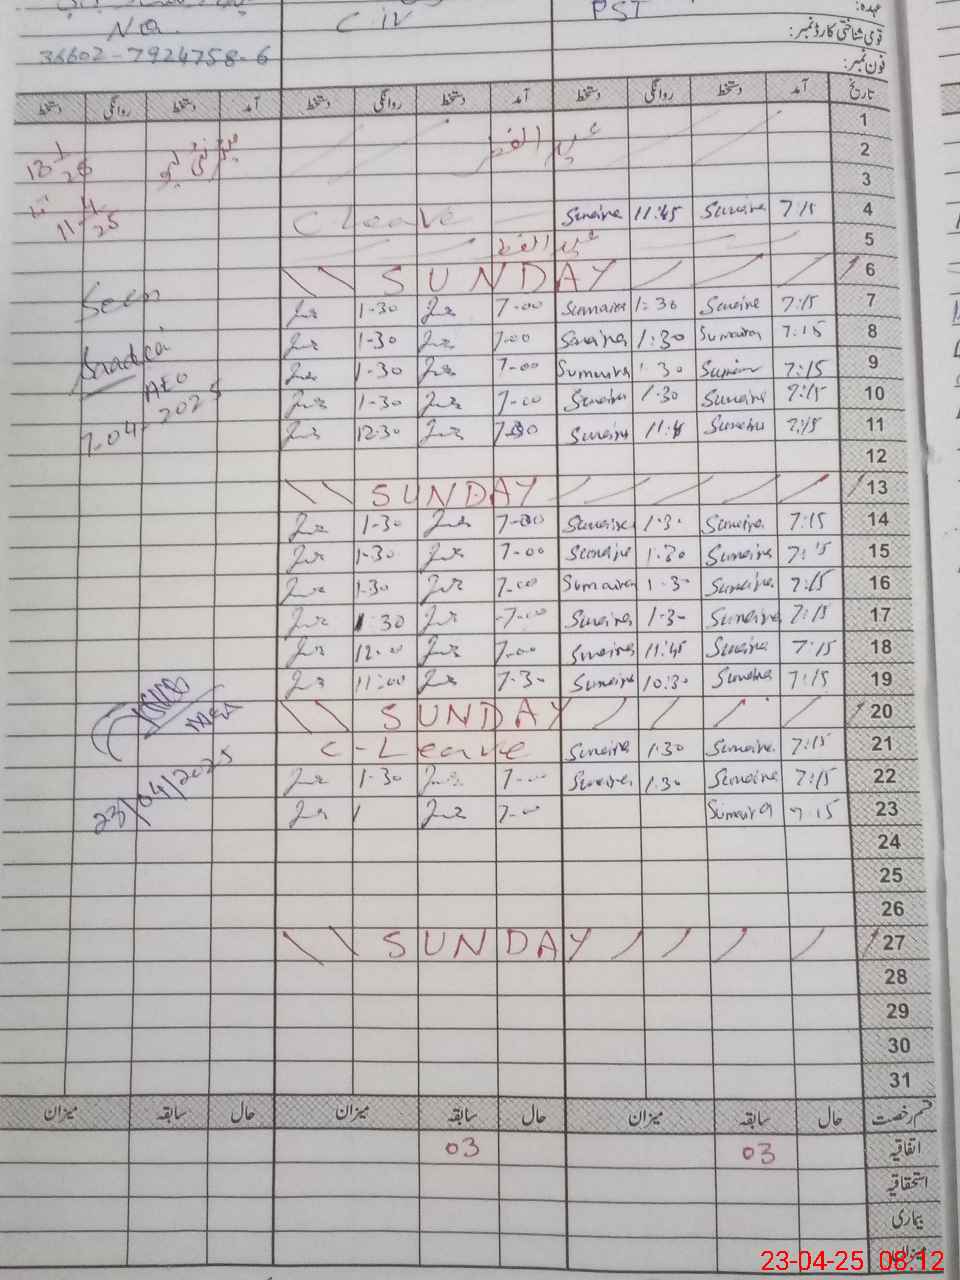 عہدہ: PST C IV
قومی شناختی کارڈ نمبر: NO.
فون نمبر: 36602-7924758-6
تاریخ آمد دستخط روانگی دستخط آمد دستخط روانگی دستخط آمد دستخط روانگی دستخط
1
2 عید الفطر
3
4 7:15 Sumaira 11:45 Sumaira C Leave
5 عید الفطر
6 SUNDAY
7 7:15 Sumaira 1:30 Sumaira 7-00 1-30
8 7:15 Sumaira 1:30 Sumaira 7-00 1-30
9 7:15 Sumaira 1:30 Sumaira 7-00 1-30
10 7:15 Sumaira 1:30 Sumaira 7-00 1-30
11 7:15 Sumaira Sumaira 12-30
12
13 SUNDAY
14 7:15 Sumaira 1:30 Sumaira 7-00 1-30
15 7:15 Sumaira 1:30 Sumaira 7-00 1-30
16 7:15 Sumaira 1:30 Sumaira 7-00 1-30
17 7:15 Sumaira 1:30 Sumaira 7-00 1:30
18 7:15 Sumaira 11:45 Sumaira 7-00 12-00
19 7:15 Sumaira 10:30 Sumaira 7-30 11:00
20 SUNDAY
21 7:15 Sumaira 1:30 Sumaira C-Leave
22 7:15 Sumaira 1:30 Sumaira 7-00 1-30
23 7:15 Sumaira 7-00 1
24
25
26
27 SUNDAY
28
29
30
31
Seen
Saadia
AEO
7-04-2025
MEA
23/04/2025
قسم رخصت حال سابقہ میزان حال سابقہ میزان حال سابقہ میزان
اتفاقیہ 03 03
استحقاقیہ
بیماری
میزان
23-04-25 08:12